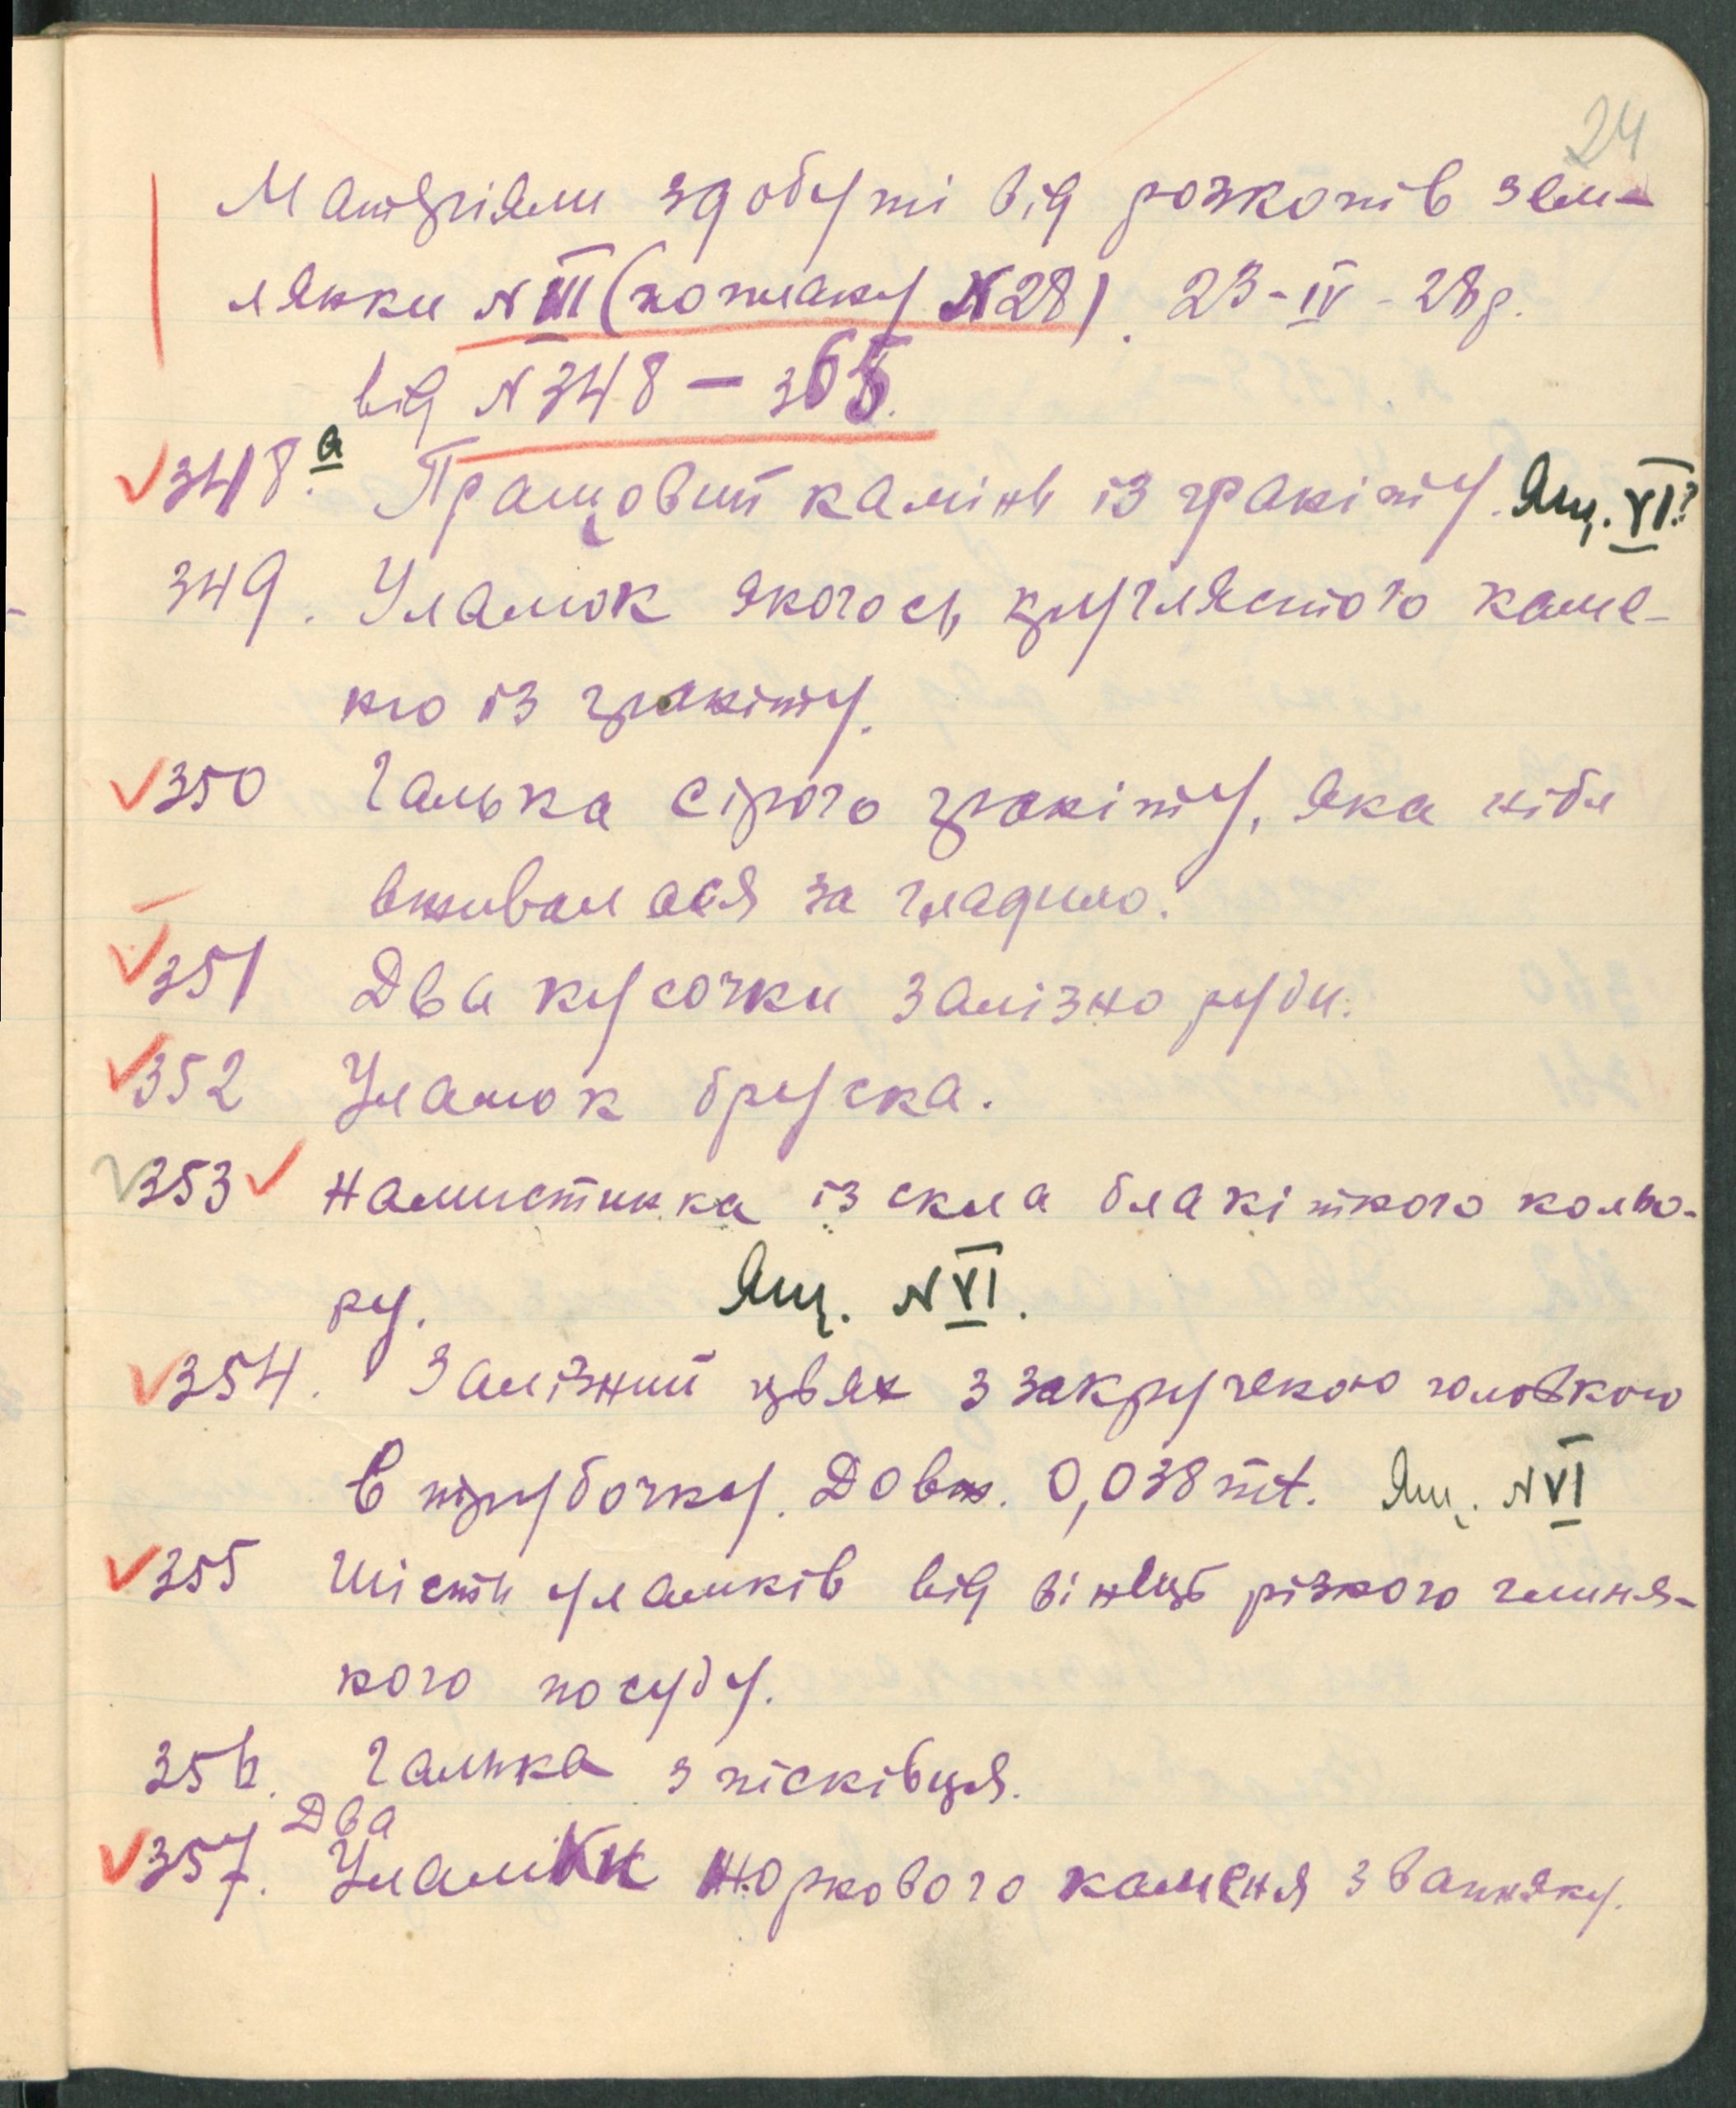 24
Матеріяли здобуті від розкопів зем-
лянки N III (по плану N 28). 23-IV-28р.
від N 348 – 365.
348.а Пращовий камінь із граніту. Ящ. VI?
349. Уламок якогось круглястого каме-
ню із граніту.
350 Галька сірого граніту, яка ніби
вживалася за гладило.
351 Два кусочки залізно руди.
352 Уламок бруска.
353 Намистинка із скла блакітного кольо-
ру. Ящ. N VI.
354. Залізний цвях з закрученою головкою
в трубочку. Довж. 0,038 mt. Ящ. N VI
355 Шість уламків від вінець різного глиня-
ного посуду.
356. Галька з пісківця.
Два
357. Уламки жорнового каменя з вапняку.